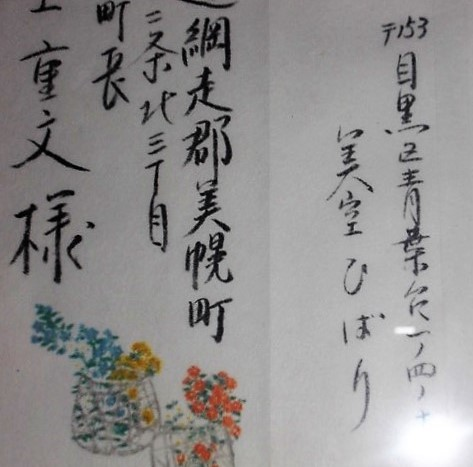 〒153
目黒区青葉台一ノ四ノ十
美空ひばり
網走郡美幌町
二条北三丁目
町長
重文様